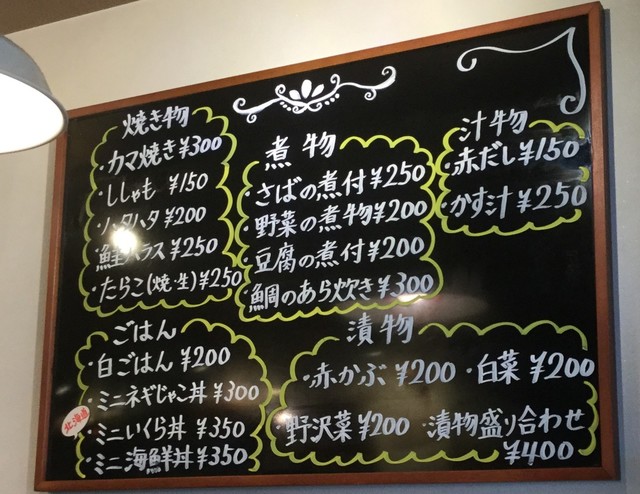 焼き物
・カマ焼き ¥300
・ししゃも ¥150
・ハタハタ ¥200
・鮭ハラス ¥250
・たらこ(焼・生) ¥250
煮物
・さばの煮付 ¥250
・野菜の煮物 ¥200
・豆腐の煮付 ¥200
・鯛のあら炊き ¥300
汁物
・赤だし ¥150
・かす汁 ¥250
ごはん
・白ごはん ¥200
・ミニネギじゃこ丼 ¥300
北海道
・ミニいくら丼 ¥350
・ミニ海鮮丼 ¥350
漬物
・赤かぶ ¥200 ・白菜 ¥200
・野沢菜 ¥200 ・漬物盛り合わせ
¥400